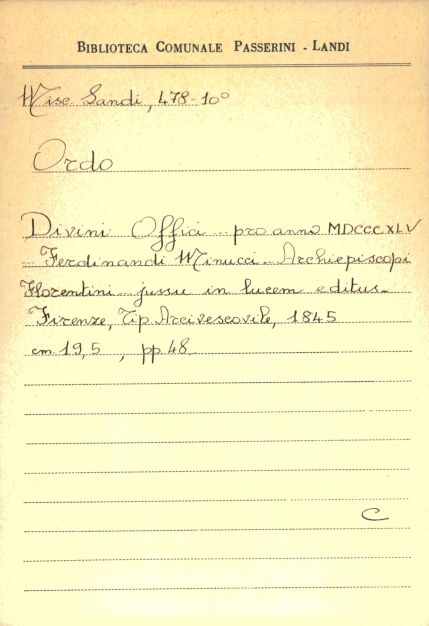 BIBLIOTECA COMUNALE PASSERINI - LANDI
Misc. Landi, 478-10°
Ordo
Divini Offici pro anno MDCCCXLV
Ferdinandi Minucci Archiepiscopi
Florentini jussu in lucem editus-
Firenze, Tip. Arcivescovile, 1845
cm 19,5 , pp. 48
C